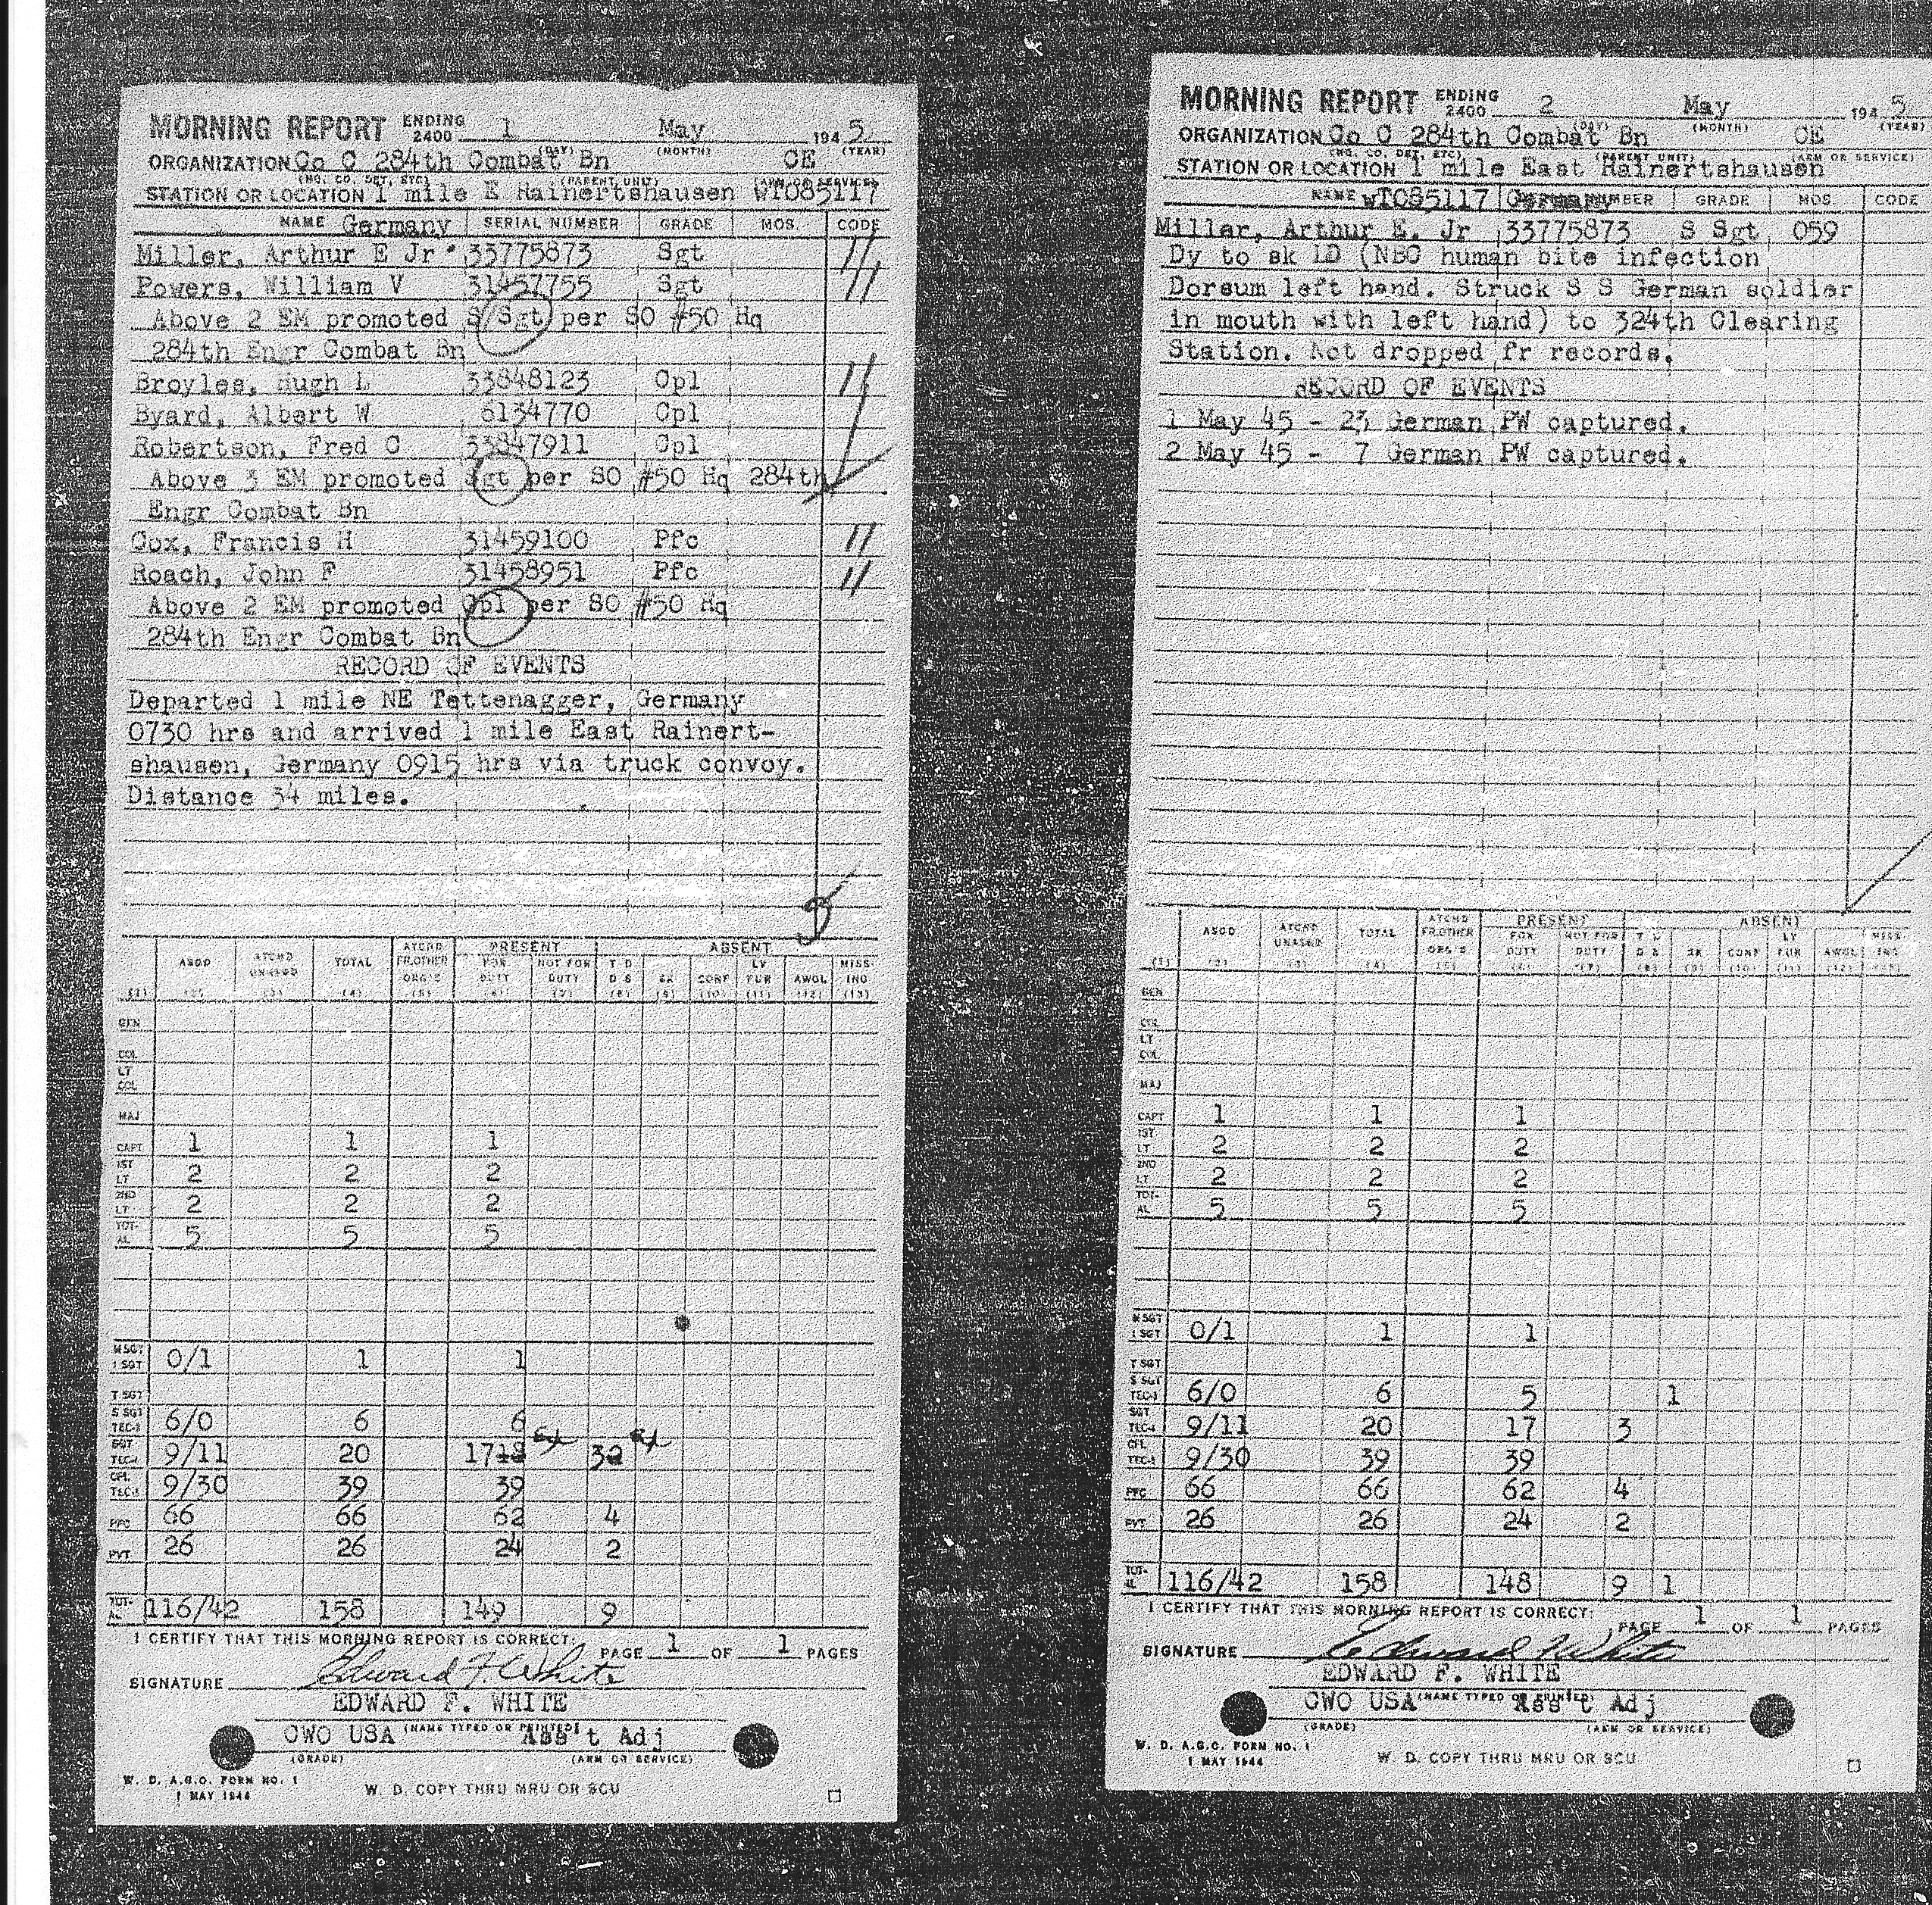 MORNING REPORT ENDING 2400 1 May 194 5
(DAY) (MONTH) (YEAR)
ORGANIZATION Co C 284th Combat Bn CE
(HQ. CO. DET. ETC) (PARENT UNIT)
STATION OR LOCATION 1 mile E Rainertshausen WT085117
NAME Germany SERIAL NUMBER GRADE MOS. CODE
Miller, Arthur E Jr 33775873 Sgt 11
Powers, William V 31457755 Sgt 11
Above 2 EM promoted S/Sgt per SO #50 Hq
284th Engr Combat Bn
Broyles, Hugh L 33848123 Cpl 11
Byard, Albert W 6134770 Cpl
Robertson, Fred C 33847911 Cpl
Above 3 EM promoted Sgt per SO #50 Hq 284th
Engr Combat Bn
Cox, Francis H 31459100 Pfc 11
Roach, John F 31458951 Pfc 11
Above 2 EM promoted Cpl per SO #50 Hq
284th Engr Combat Bn
RECORD OF EVENTS
Departed 1 mile NE Tettenagger, Germany
0730 hrs and arrived 1 mile East Rainert-
shausen, Germany 0915 hrs via truck convoy.
Distance 34 miles.
ATCHD PRESENT ABSENT
ASGD ATCHD UNASGD TOTAL FR.OTHER ORG'S FOR DUTY NOT FOR DUTY T D D S SK CONF LV FUR AWOL MISS-ING
(1) (2) (3) (4) (5) (6) (7) (8) (9) (10) (11) (12) (13)
GEN
COL
LT COL
MAJ
CAPT 1 1 1
1ST LT 2 2 2
2ND LT 2 2 2
TOT-AL 5 5 5
M SGT 1 SGT 0/1 1 1
T SGT
S SGT TEC-3 6/0 6 6
SGT TEC-4 9/11 20 17 18 3 2
CPL TEC-5 9/30 39 39
PFC 66 66 62 4
PVT 26 26 24 2
TOT-AL 116/42 158 149 9
I CERTIFY THAT THIS MORNING REPORT IS CORRECT:
PAGE 1 OF 1 PAGES
SIGNATURE Edward F. White
EDWARD F. WHITE
CWO USA (NAME TYPED OR PRINTED) Ass't Adj
(GRADE) (ARM OR SERVICE)
W. D. A.G.O. FORM NO. 1
1 MAY 1944
W. D. COPY THRU MRU OR SCU
MORNING REPORT ENDING 2400 2 May 194 5
(DAY) (MONTH) (YEAR)
ORGANIZATION Co C 284th Combat Bn CE
(HQ. CO. DET. ETC) (PARENT UNIT) (ARM OR SERVICE)
STATION OR LOCATION 1 mile East Rainertshausen
NAME wT085117 Germany NUMBER GRADE MOS. CODE
Miller, Arthur E. Jr 33775873 S Sgt 059
Dy to sk LD (NBC human bite infection
Dorsum left hand. Struck S S German soldier
in mouth with left hand) to 324th Clearing
Station. Not dropped fr records.
RECORD OF EVENTS
1 May 45 - 23 German PW captured.
2 May 45 - 7 German PW captured.
ATCHD PRESENT ABSENT
ASGD ATCHD UNASGD TOTAL FR.OTHER ORG'S FOR DUTY NOT FOR DUTY T D D S SK CONF LV FUR AWOL MISS-ING
(1) (2) (3) (4) (5) (6) (7) (8) (9) (10) (11) (12) (13)
GEN
COL
LT COL
MAJ
CAPT 1 1 1
1ST LT 2 2 2
2ND LT 2 2 2
TOT-AL 5 5 5
M SGT 1 SGT 0/1 1 1
T SGT
S SGT TEC-3 6/0 6 5 1
SGT TEC-4 9/11 20 17 3
CPL TEC-5 9/30 39 39
PFC 66 66 62 4
PVT 26 26 24 2
TOT-AL 116/42 158 148 9 1
I CERTIFY THAT THIS MORNING REPORT IS CORRECT:
PAGE 1 OF 1 PAGES
SIGNATURE Edward F White
EDWARD F. WHITE
CWO USA (NAME TYPED OR PRINTED) Ass't Adj
(GRADE) (ARM OR SERVICE)
W. D. A.G.O. FORM NO. 1
1 MAY 1944
W. D. COPY THRU MRU OR SCU